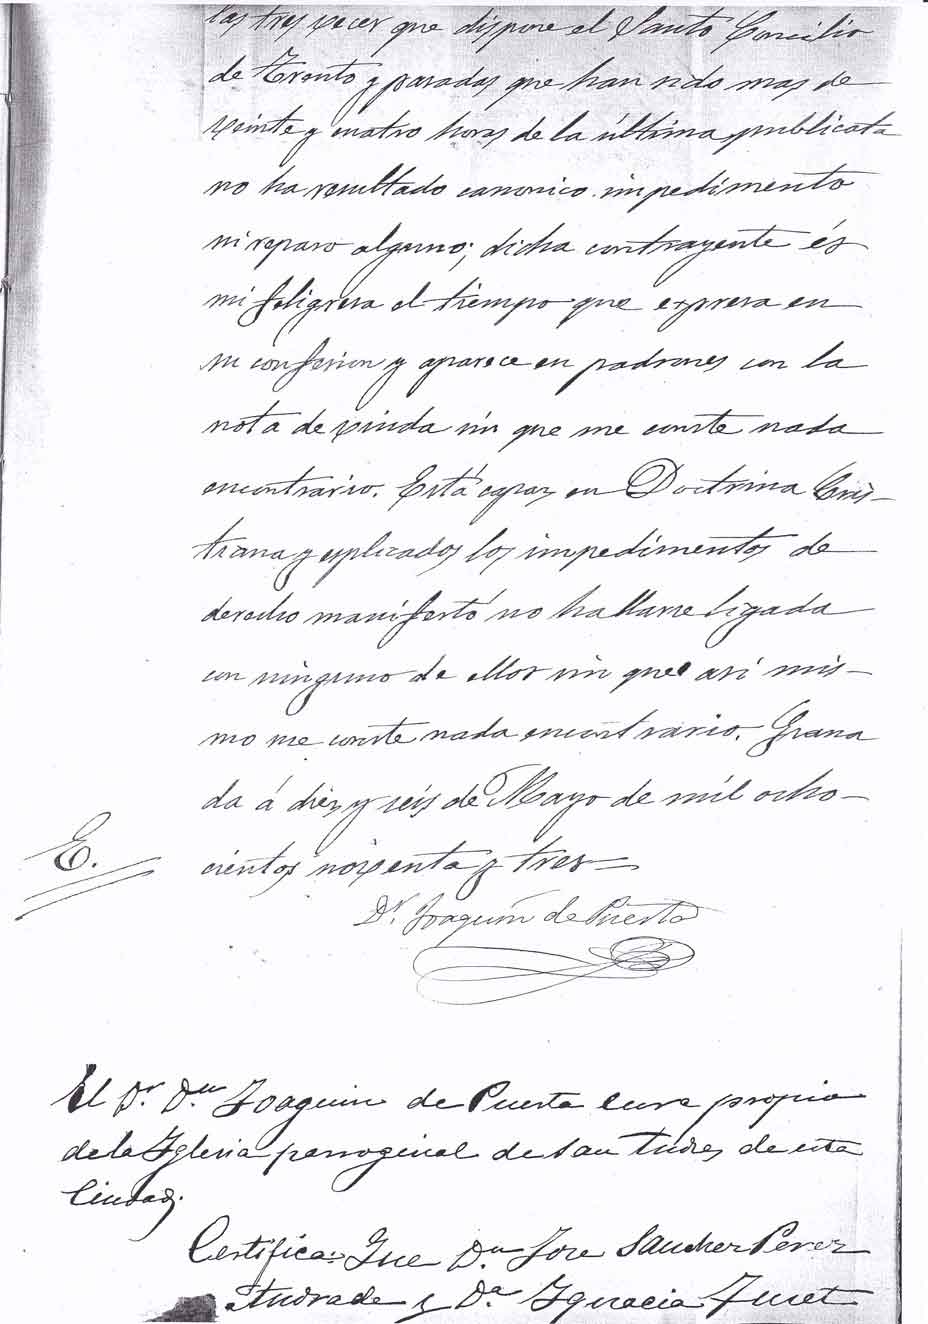 las tres veces que dispone el Santo Concilio
de Trento y pasadas que han sido mas de
veinte y cuatro horas de la última publicata
no ha resultado canonico impedimento
ni reparo alguno; dicha contrayente és
mi feligresa el tiempo que expresa en
su confesion y aparece en padrones con la
nota de viuda sin que me conste nada
encontrario. Está capaz en Doctrina Cris-
tiana y esplicados los impedimentos de
derecho manifestó no hallarse ligada
con ninguno de ellos sin que asi mis-
mo me conste nada encontrario. Grana
da á diez y seis de Mayo de mil ocho-
cientos noventa y tres
E.
Dr. Joaquin de Puerta
El Dr. Dn Joaquin de Puerta cura propio
de la Iglesia parroquial de San Andres de esta
Ciudad.
Certifica: Que Dn Jose Sanchez Perez
Andrade y Da. Ignacia